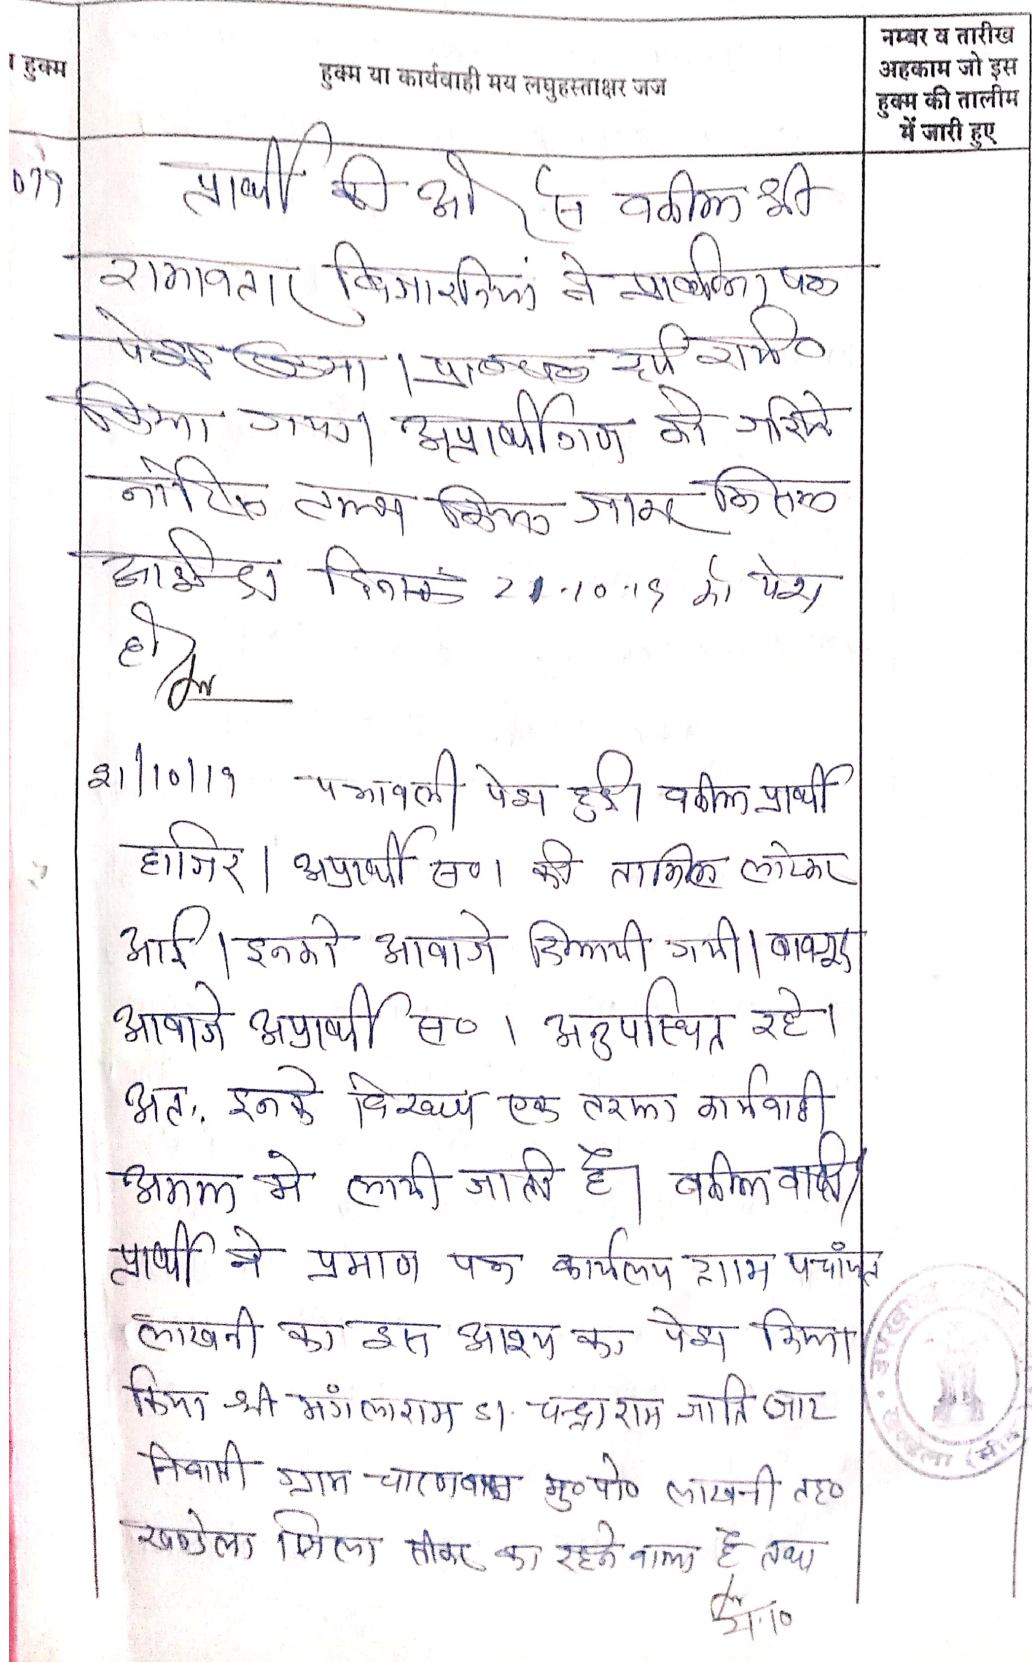 हुक्म
हुक्म या कार्यवाही मय लघुहस्ताक्षर जज
नम्बर व तारीख
अहकाम जो इस
हुक्म की तालीम
में जारी हुए
प्रार्थी की ओर से वकील श्री
रामावतार ने प्रार्थना पत्र
पेश किया। दर्ज राजी०
किया गया। अप्रार्थीगण को जरिये
नोटिस तलब किया जाकर मिसल
आईन्दा दिनांक 21.10.19 को पेश
हो
21/10/19 पत्रावली पेश हुई। वकील प्रार्थी
हाजिर। अप्रार्थी स० 1 की तामिल लोटकर
आई। इनको आवाजे दिलायी गयी। बावजूद
आवाजे अप्रार्थी स० 1 अनुपस्थित रहे।
अत. इनके विरूध एक तरफा कार्यवाही
अमल मे लायी जाती है। वकील वादी/
प्रार्थी ने प्रमाण पत्र कार्यलय ग्राम पचांयत
लाखनी का इस आश्य का पेश किया
किया श्री मंगलाराम S/. चन्द्राराम जाति जाट
निवासी ग्राम चारणवास मु०पो० लाखनी तह०
खण्डेला जिला सीकर का रहने वाला है तथा
21.10